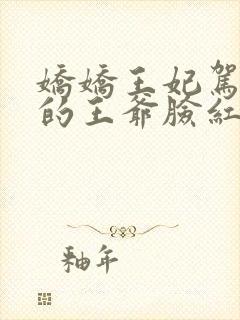 嬌嬌王妃駕
的王爺臉紅
釉年